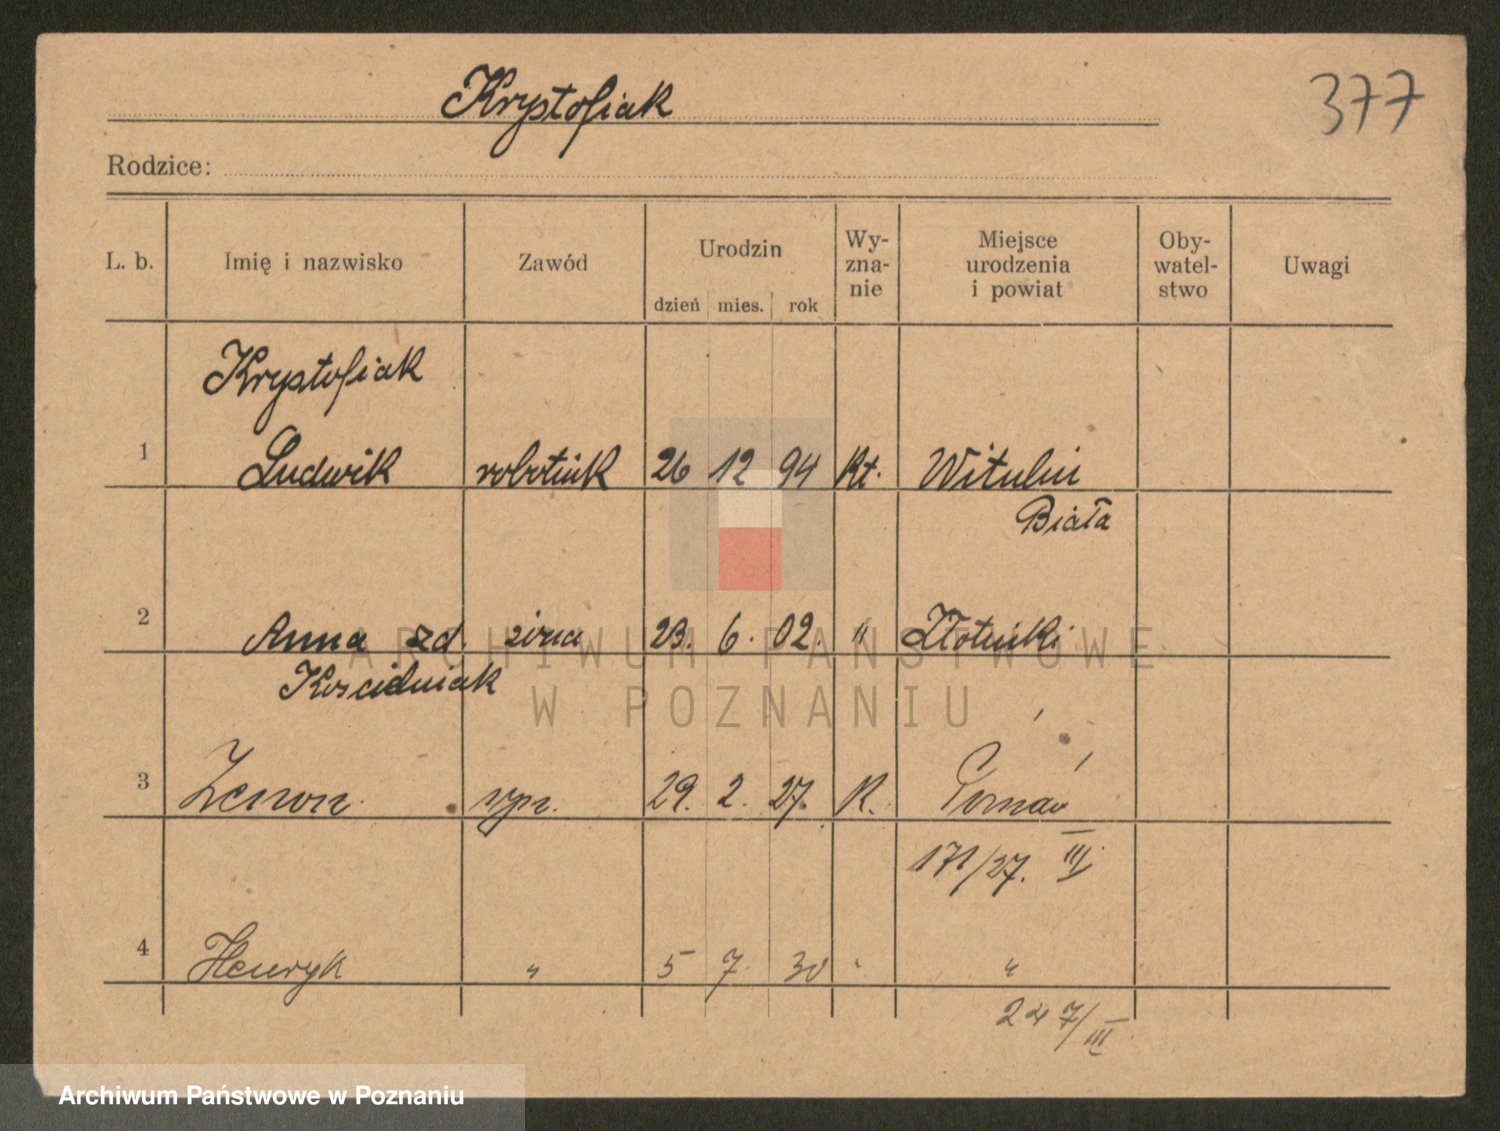 Krystofiak
377
Rodzice:
L. b. Imię i nazwisko Zawód Urodzin dzień mies. rok Wy-zna-nie Miejsce urodzenia i powiat Oby-watel-stwo Uwagi
Krystofiak
1 Ludwik robotnik 26 12 94 kt. Witulin
Biała
2 Anna zd. żona 23. 6. 02. " Złotniki
Kościelniak
3 Zenon syn. 29. 2. 27. K. Poznań
171/27. III
4 Henryk " 5 7. 30 " "
247/III
ARCHIWUM PAŃSTWOWE
W POZNANIU
Archiwum Państwowe w Poznaniu